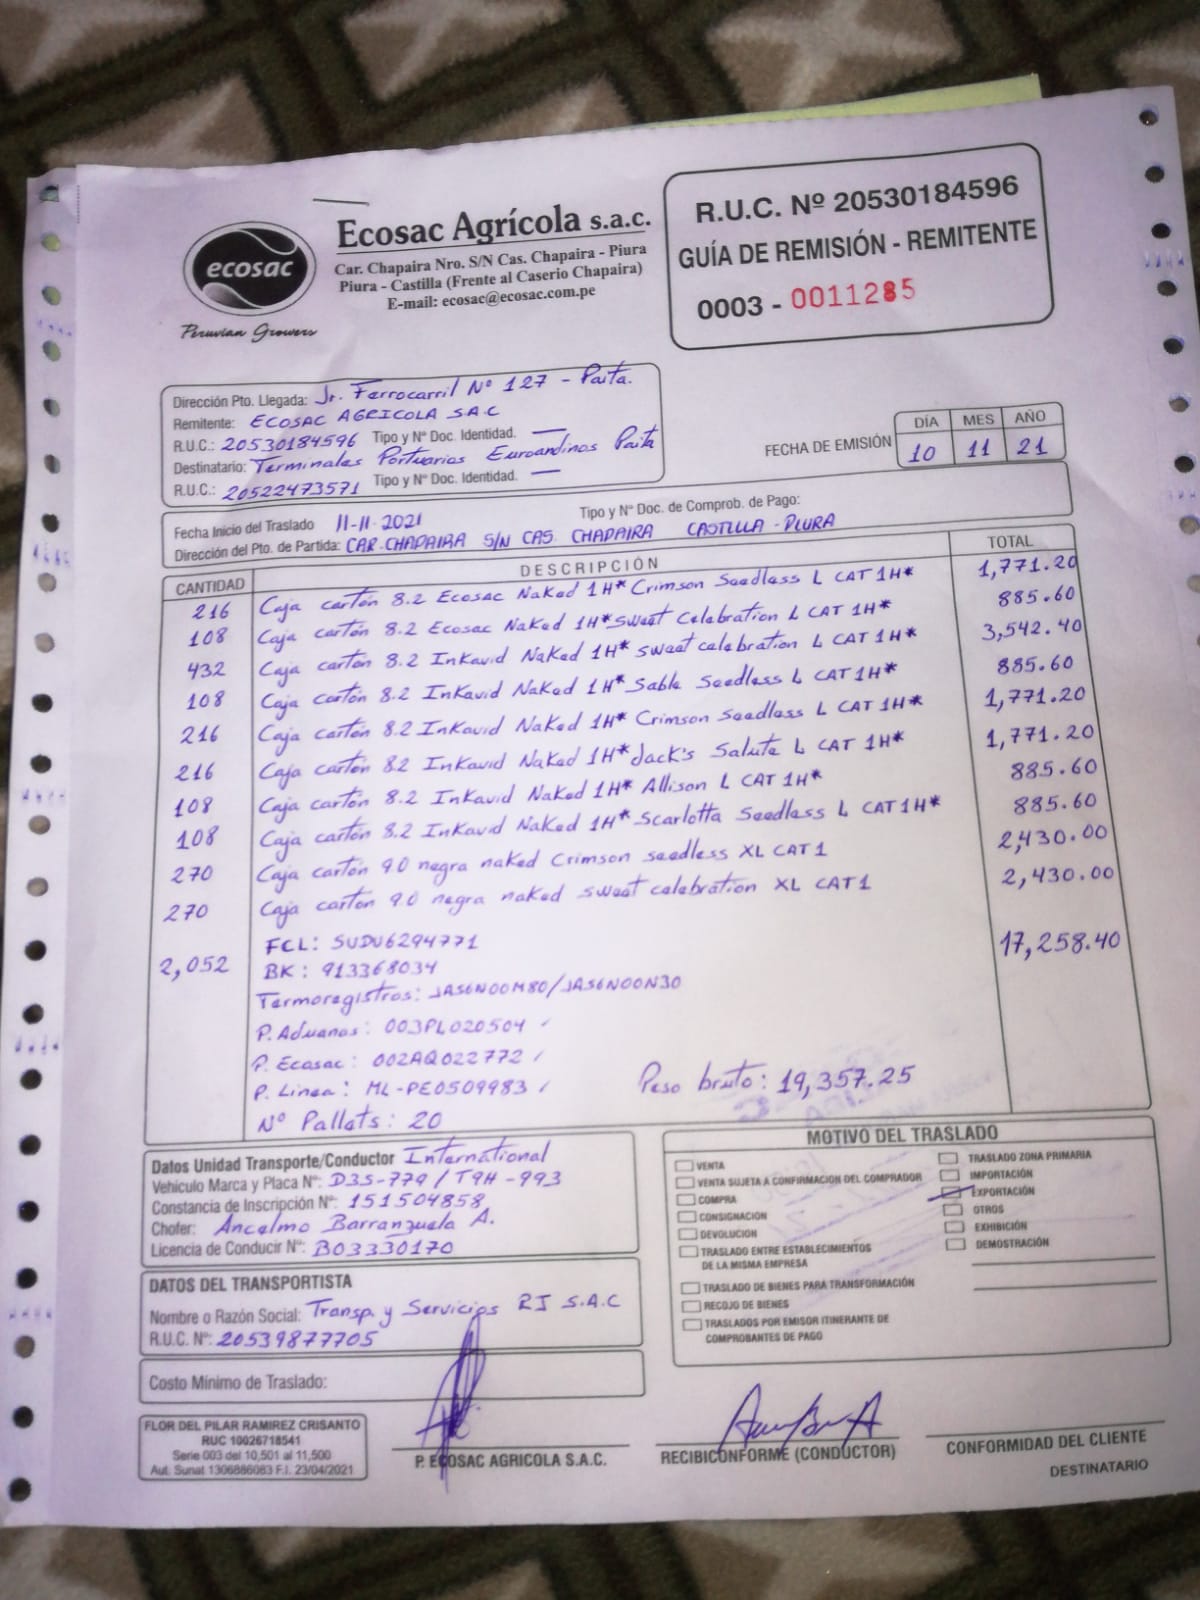 ecosac
Peruvian Growers
Ecosac Agrícola s.a.c.
Car. Chapaira Nro. S/N Cas. Chapaira - Piura
Piura - Castilla (Frente al Caserio Chapaira)
E-mail: ecosac@ecosac.com.pe
R.U.C. Nº 20530184596
GUÍA DE REMISIÓN - REMITENTE
0003 - 0011285
Dirección Pto. Llegada: Jr. Ferrocarril Nº 127 - Paita.
Remitente: ECOSAC AGRICOLA S.A.C
R.U.C.: 20530184596 Tipo y Nº Doc. Identidad. —
Destinatario: Terminales Portuarios Euroandinos Paita
R.U.C.: 20522473571 Tipo y Nº Doc. Identidad. —
FECHA DE EMISIÓN DÍA MES AÑO
10 11 21
Fecha Inicio del Traslado 11-11-2021 Tipo y Nº Doc. de Comprob. de Pago:
Dirección del Pto. de Partida: CAR. CHAPAIRA S/N CAS. CHAPAIRA CASTILLA - PIURA
CANTIDAD DESCRIPCIÓN TOTAL
216 Caja cartón 8.2 Ecosac Naked 1H* Crimson Seedless L CAT 1H* 1,771.20
108 Caja cartón 8.2 Ecosac Naked 1H* Sweet Celebration L CAT 1H* 885.60
432 Caja cartón 8.2 Inkavid Naked 1H* sweet celebration L CAT 1H* 3,542.40
108 Caja cartón 8.2 Inkavid Naked 1H* Sable Seedless L CAT 1H* 885.60
216 Caja cartón 8.2 Inkavid Naked 1H* Crimson Seedless L CAT 1H* 1,771.20
216 Caja cartón 8.2 Inkavid Naked 1H* Jack's Salute L CAT 1H* 1,771.20
108 Caja cartón 8.2 Inkavid Naked 1H* Allison L CAT 1H* 885.60
108 Caja cartón 8.2 Inkavid Naked 1H* Scarlotta Seedless L CAT 1H* 885.60
270 Caja cartón 9.0 negra naked Crimson seedless XL CAT 1 2,430.00
270 Caja cartón 9.0 negra naked sweet celebration XL CAT 1 2,430.00
FCL: SUDU6294771
2,052 BK: 913368034 17,258.40
Termoregistros: JAS6N00M80/JAS6N00N30
P. Aduanas: 003PL020504
P. Ecosac: 002AQ022772
P. Linea: ML-PE0509983 Peso bruto: 19,357.25
Nº Pallets: 20
Datos Unidad Transporte/Conductor International
Vehículo Marca y Placa Nº: D3S-779 / T9H-993
Constancia de Inscripción Nº: 151504858
Chofer: Ancelmo Barranzuela A.
Licencia de Conducir Nº: B03330170
DATOS DEL TRANSPORTISTA
Nombre o Razón Social: Transp. y Servicios RJ S.A.C
R.U.C. Nº: 20539877705
Costo Mínimo de Traslado:
MOTIVO DEL TRASLADO
VENTA
VENTA SUJETA A CONFIRMACION DEL COMPRADOR
COMPRA
CONSIGNACION
DEVOLUCION
TRASLADO ENTRE ESTABLECIMIENTOS
DE LA MISMA EMPRESA
TRASLADO DE BIENES PARA TRANSFORMACIÓN
RECOJO DE BIENES
TRASLADOS POR EMISOR ITINERANTE DE
COMPROBANTES DE PAGO
TRASLADO ZONA PRIMARIA
IMPORTACIÓN
EXPORTACIÓN
OTROS
EXHIBICIÓN
DEMOSTRACIÓN
FLOR DEL PILAR RAMIREZ CRISANTO
RUC 10026718541
Serie 003 del 10,501 al 11,500
Aut. Sunat 1306886083 F.I. 23/04/2021
P. ECOSAC AGRICOLA S.A.C.
RECIBI CONFORME (CONDUCTOR)
CONFORMIDAD DEL CLIENTE
DESTINATARIO